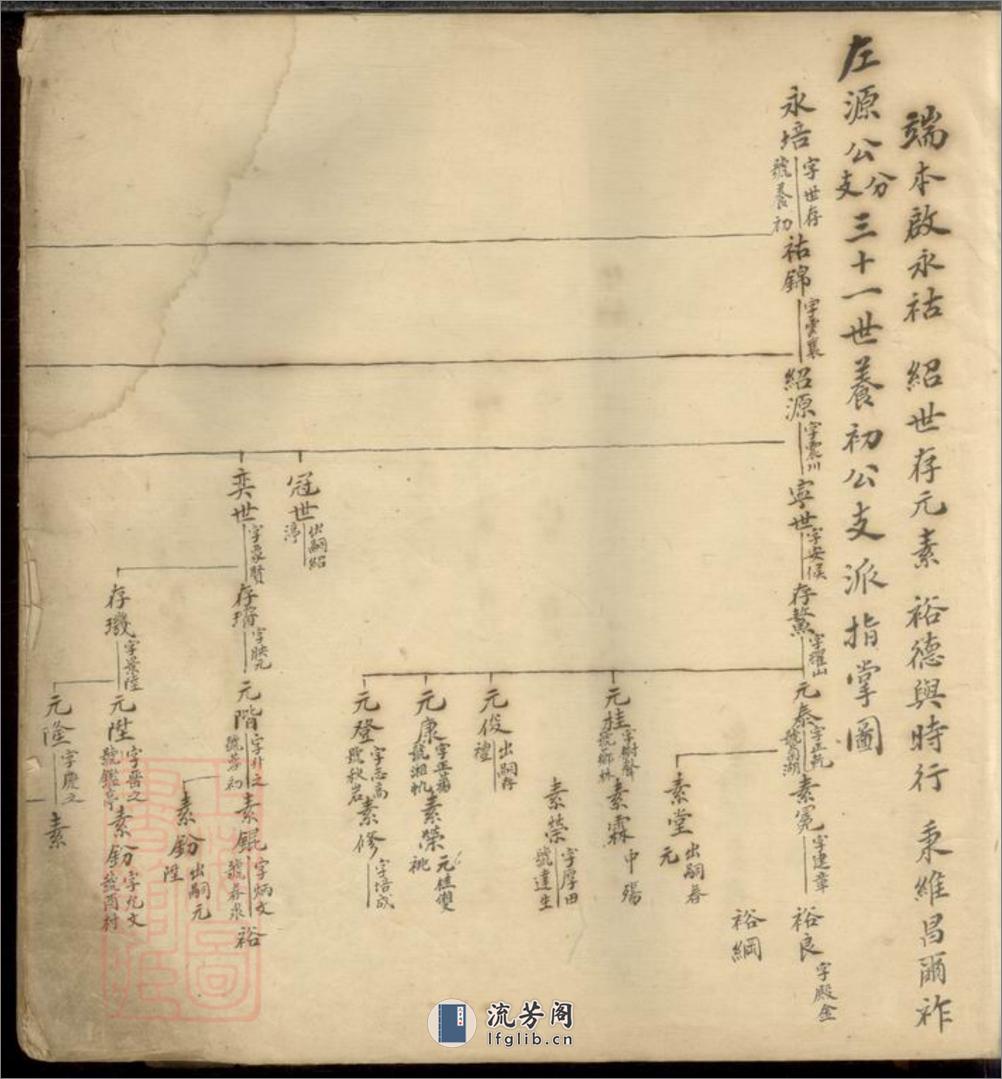 端本啟永祜 紹世存元素 裕德與時行 秉維昌爾祚
左源公分支三十一世養初公支派指掌圖
永培 字世存 號養初
祜錦
紹源 字震川
寧世 字安侯
存鰲 字耀山
元泰 字正乾
素冕 字建章
裕良 字殿金
裕綱
素堂 出嗣春元
元桂
素霖 中殤
素榮 字厚田 號達生
元俊 出嗣存禮
元康 號湘帆
素榮 元桂雙祧
元登 字志高 號秋岩
素修 字培成
冠世 出嗣紹淳
奕世
存璿 字映元
元階 字升之
素錕 字炳文 號春泉
裕
素鈖 出嗣元陞
存璣 字景陸
元陞 字晉之 號鑑亭
素鈖 字九文 號雨村
元隆 字慶之
素
流芳阁
lfglib.cn